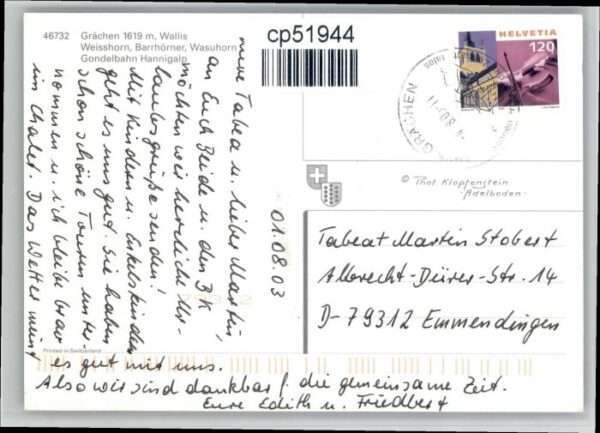 46732 Grächen 1619 m, Wallis
Weisshorn, Barrhörner, Wasuhorn
Gondelbahn Hannigalp
cp51944
HELVETIA
120
GRÄCHEN
© Thor Klopfenstein
Adelboden
01.08.03
meine Tabea u. lieber Martin,
an Euch Beide u. den BK
möchten wir herzliche Ur-
laubsgrüße senden!
Mit Kindern u. Enkelskindern
geht es uns gut. Sie haben
schon schöne Touren unter-
nommen u. ich bleibe brav
im Chalet. Das Wetter meint
es gut mit uns.
Also wir sind dankbar f. die gemeinsame Zeit.
Eure Edith u. Friedbert
Tabea + Martin Stobert
Albrecht-Dürer-Str. 14
D-79312 Emmendingen
Printed in Switzerland